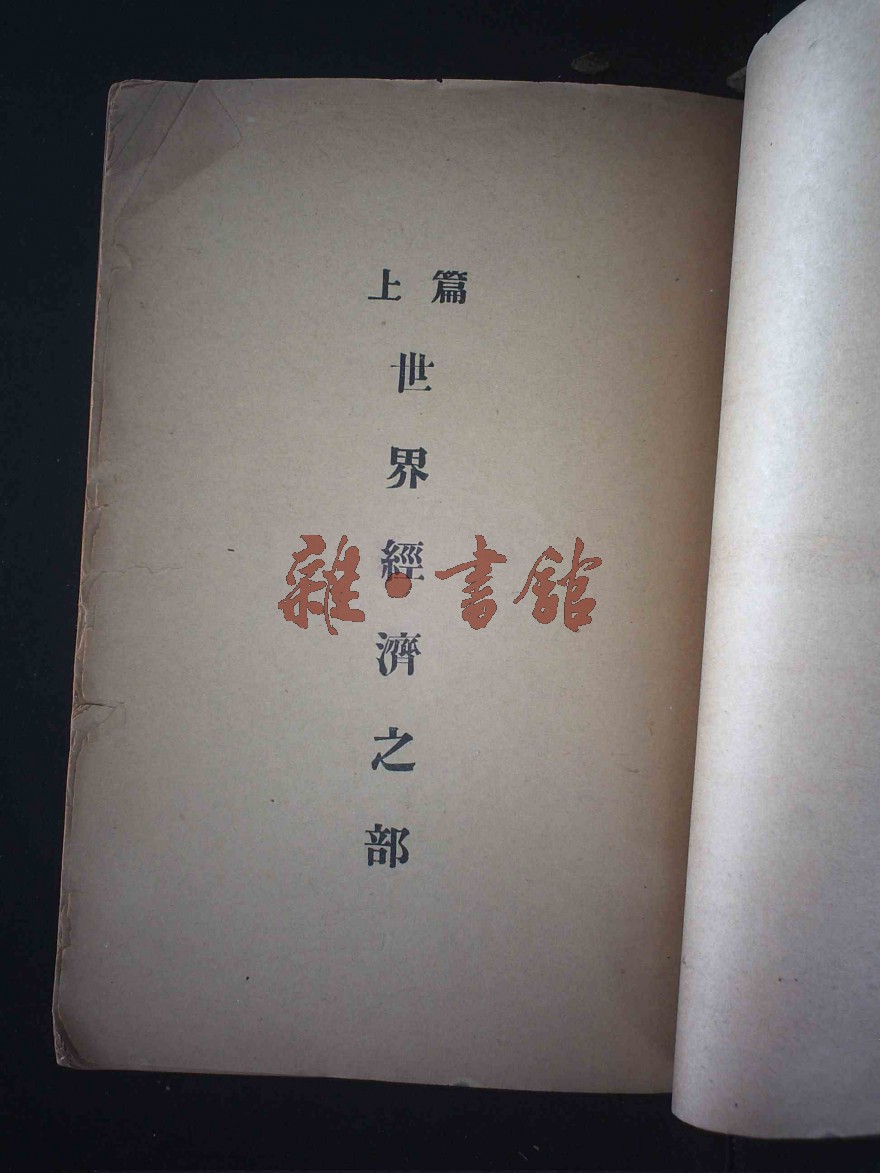 上篇
世界經濟之部
雜·書館